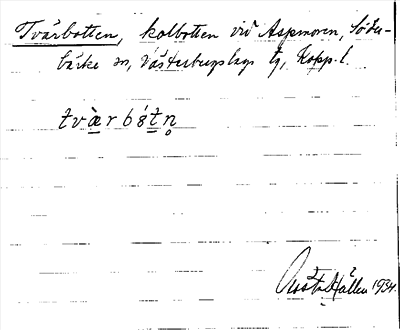 Tvärbotten, kolbotten vid Aspmoren, Söder-
bärke sn, Västerbergslags tg, Kopp. l.
tvàrbótn̥
Gösta Hällen 1934.